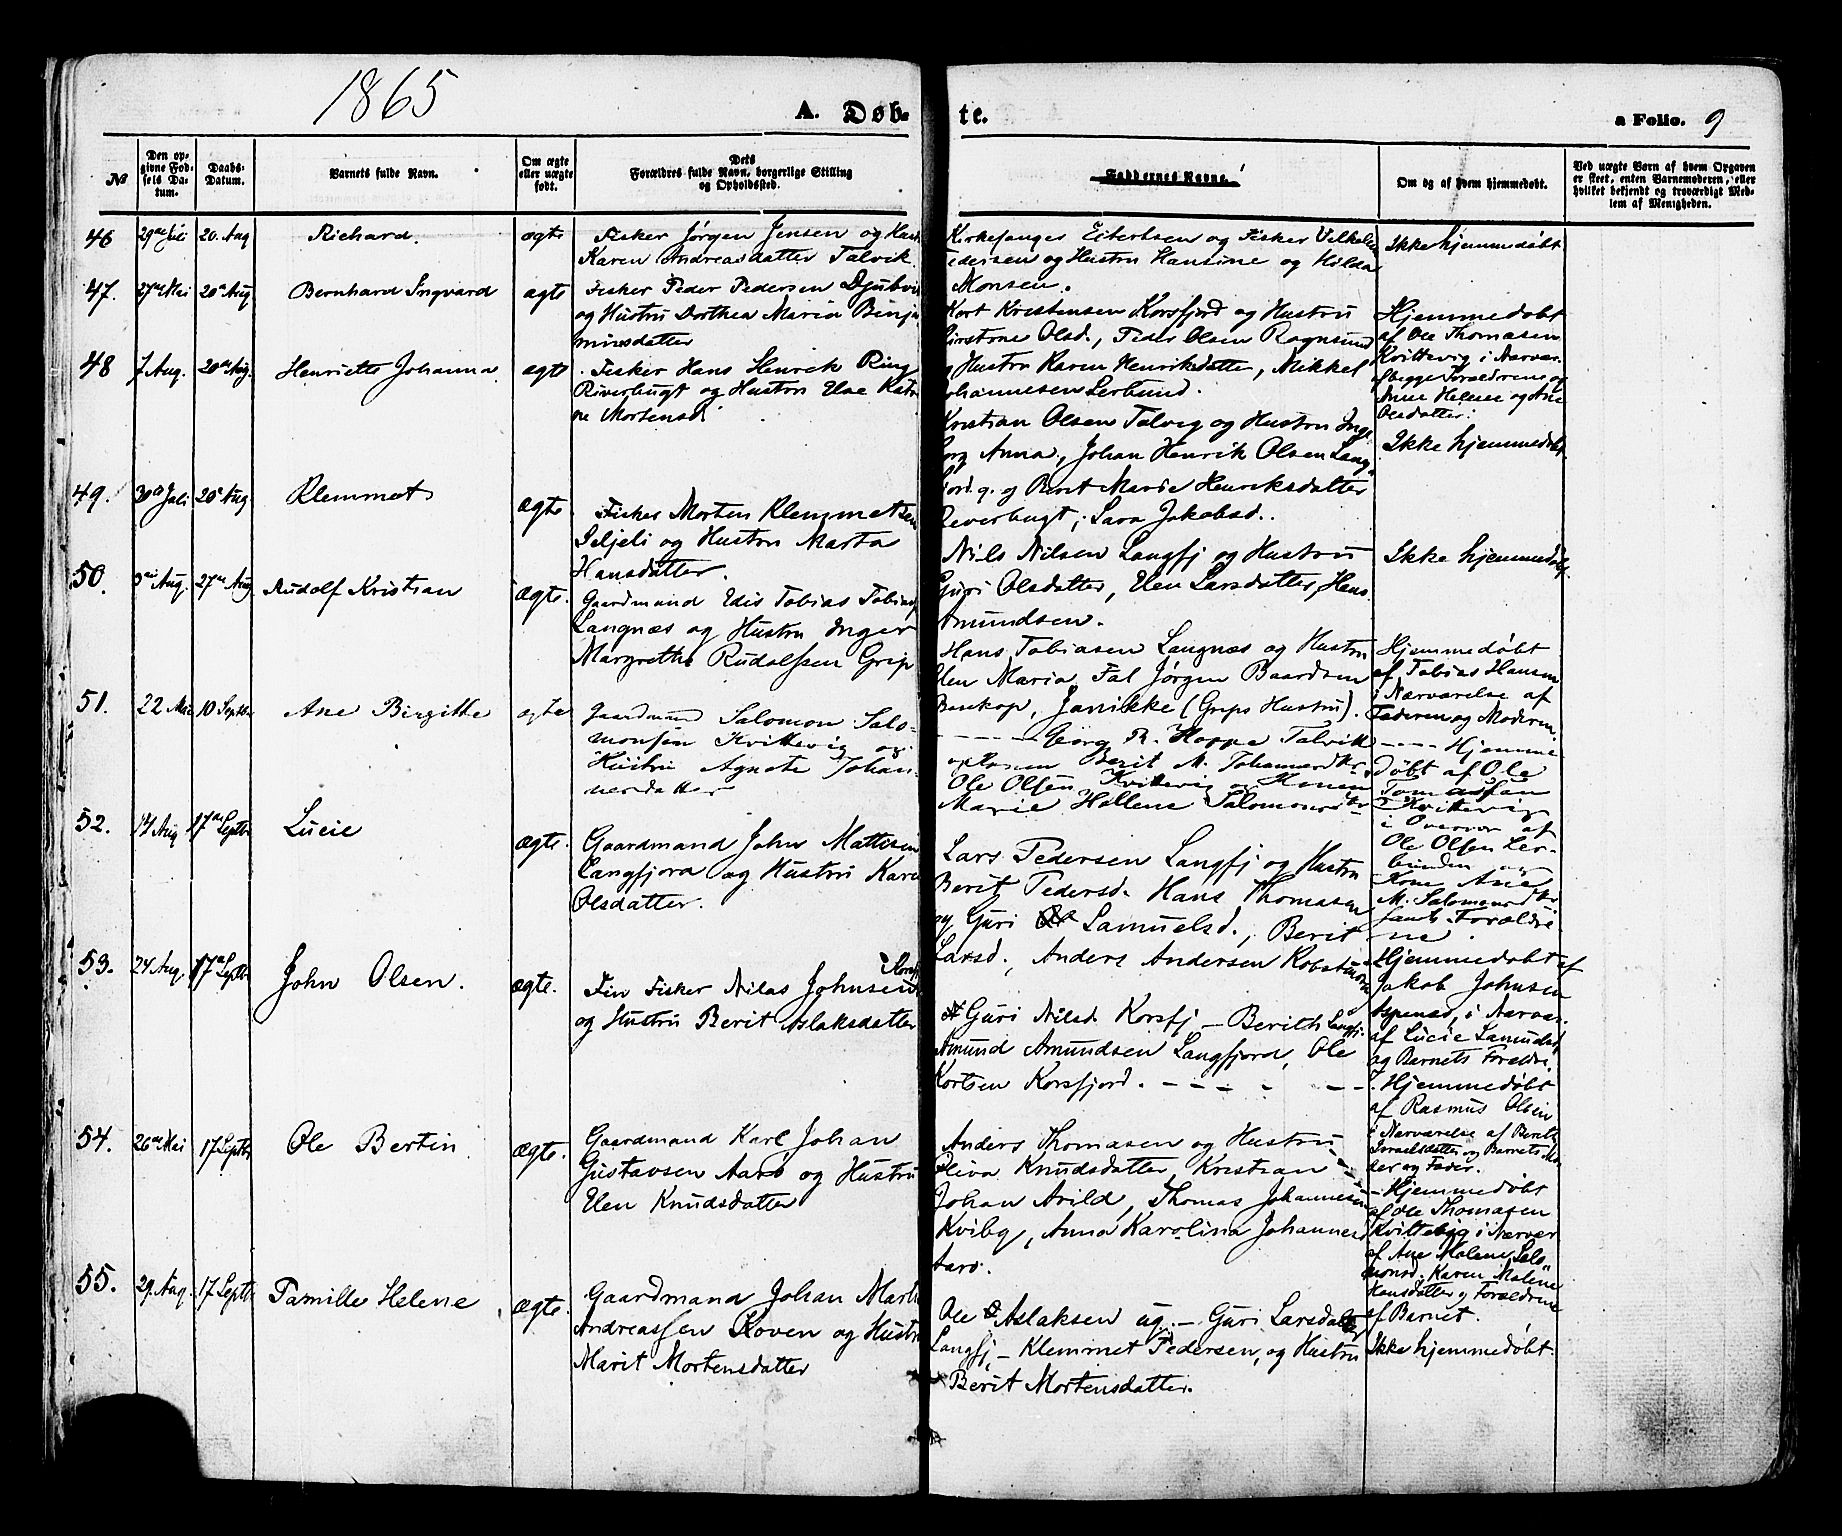 1865
A. Døb-
te.
a Folio. 9
№
Den op-
givne Fød-
sels Da-
tum.
Daabs-
Datum.
Barnets fulde Navn.
Om ægte
eller uægte
født.
Dets
Forældres fulde Navn, borgerlige Stilling
og Opholdssted.
Faddernes Navne.
Om og af hvem hjemmedøbt.
Ved uægte Børn af hvem Opgaven
er skeet, enten Barnemoderen, eller
hvilket bekjendt og troværdigt Med-
lem af Menigheden.
46
29de Juli
20. Aug
Richard.
ægte
Fisker Jørgen Jensen og
Karen Andreasdatter Talvik.
Kirkesanger Eilertsen og Fisker
og Hustru Hansine og Hilda
Monsen.
Ikke hjemmedøbt
47.
27de Mai
20de Aug
Bernhard Ingvard
ægte
Fisker Peder Pedersen
og Hustru Dorthea Maria Binja
minsdatter
Kort Kristensen Korsfjord og Hustru
Olsd., Peder Olsen Rognsund
og Hustru Karen Henriksdatter, Mikkel
Johannesen Lerbund.
Hjemmedøbt
af Ole Thomasen
Kvittevig i Nærvær.
af begge Forældrene og
Anne Helene og Ane
Olsdatter.
48
7 Aug.
20de Aug.
Henriette Johanna
ægte
Fisker Hans Henrik Ring
Riverbugt og Hustru Elne Katri
ne Mortensd.
Kristian Olsen Talvig og Hustru Inge
borg Anna, Johan Henrik Olsen Lang
fjord. g. og Berit Marie Henriksdatter
Reverbugt, Sara Jakobsd.
Ikke hjemmedøbt.
49.
30te Juli
20de Aug
Klemmet
ægte
Fisker Morten Klemmetsen
Seljeli og Hustru Marta
Hansdatter.
Nils Nilsen Langfj og Hustru
Guri Olsdatter, Elen Larsdatter, Hans
Amundsen.
Ikke hjemmedøbt.
50.
Aug.
27de Aug
Rudolf Kristian
ægte.
Gaardmand Edis Tobias Tobias
Langnæs og Hustru Inger
Margrethe Rudolfsen Grip
Hans Tobiasen Langnæs og Hustru
Elen Maria, Jørgen Baardsen
Boskop, Janikke (Grips Hustru).
Hjemmedøbt
af Tobias Hansen
i Nærværelse af
Faderen og Moderen.
51.
22 Mai
10 Septbr
Ane Birgitte
ægte
Gaardmand Salomon Salo-
monsen Kvittevig og
Hustru Agnete Johan-
nesdatter
Georg R. Hoppe Talvik
Berit M. Johannesdtr.
Ole Olsen Kvittevig og Konen
Marie Hellene Salomonsdtr
Hjemme
døbt af Ole
Tomassen
Kvittevig
i Overvær af
Ole Olsen Ler-
bunden og
Kone Ane
M. Salomonsdtr
samt Forældre-
ne.
52.
14 Aug
17de Septbr
Lucie
ægte.
Gaardmand John Mattisen
Langfjord og Hustru Karen
Olsdatter.
Lars Pedersen Langfj og Hustru
Berit Pedersd. Hans Thomasen
og Guri Samuelsd., Berit
Larsd., Anders Andersen
Hjemmedøbt af
Jakob Johnsen
Aspenæs, i Nærvær.
af Lucie Samuelsd.
og Barnets Foreldre.
53.
24 Aug.
17de Septbr
John Olsen.
ægte.
Fin Fisker Nilas Johnsen Korsfj
og Hustru Berit Aslaksdatter
Guri Nilsd. Korsfj – Berith Langfj.
Amund Amundsen Langfjord, Ole
Kortsen Korsfjord.
Hjemmedøbt
af Rasmus Olsen
i Nærværelse af Berit
Israelsdatter og Barnets Mo
der og Fader.
54.
26de Mai
17 Septbr
Ole Bertin.
ægte.
Gaardmand Karl Johan
Gustavsen Aarø og Hustru
Elen Knudsdatter
Anders Thomasen og Hustru
Oliva Knudsdatter, Kristian
Johan Arild, Thomas Johannesen
Kviby, Anna Karolina Johannesd
Aarø.
Hjemmedøbt
af Ole Thomasen
Kvittevig i Nærvær
af Ane Malene Salo
monsd. Karen Malene
Hansdatter og Forældrene
af Barnet.
55.
29. Aug.
17 Septbr
Pamille Helene
ægte.
Gaardmand Johan Martin
Andreassen Koven og Hustru
Marit Mortensdatter
Ole Aslaksen ug. – Guri Larsdatter
Langfj, – Klemmet Pedersen, og Hustru
Berit Mortensdatter.
Ikke hjemmedøbt.